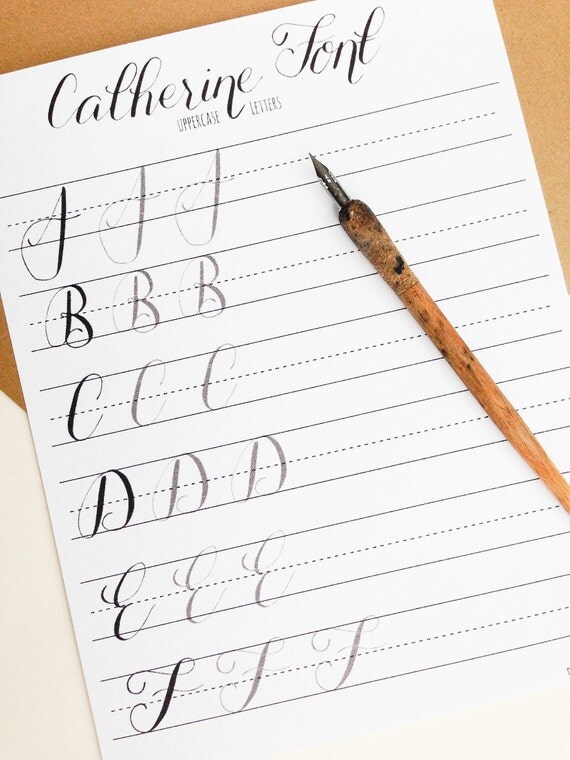 Catherine Font
UPPERCASE LETTERS
A A A
B B B
C C C
D D D
E E E
F F F